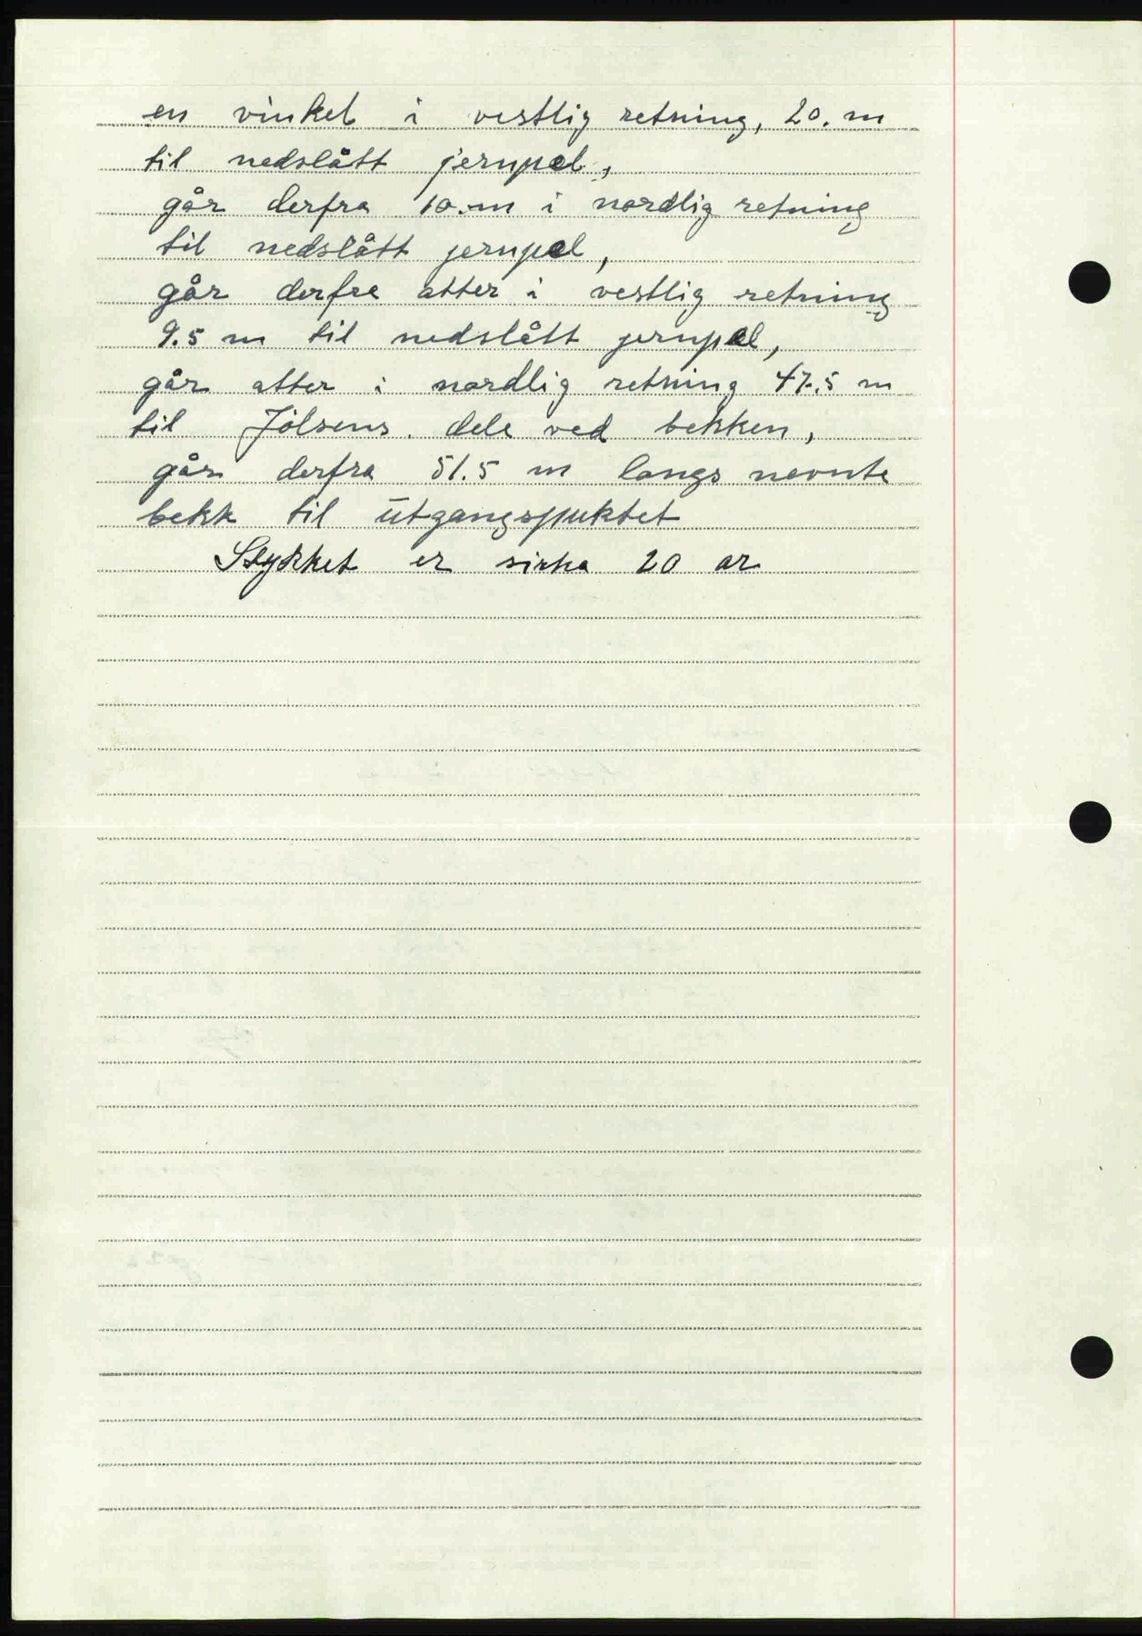 en vinkel i vestlig retning, 20. m
til nedslått jernpel,
går derfra 10. m i nordlig retning
til nedslått jernpel,
går derfra atter i vestlig retning
9.5 m til nedslått jernpel,
går atter i nordlig retning 47.5 m
til Jölsens. dele ved bekken,
går derfra 51.5 m langs nevnte
bekk til utgangspuktet
Stykket er sirka 20 ar